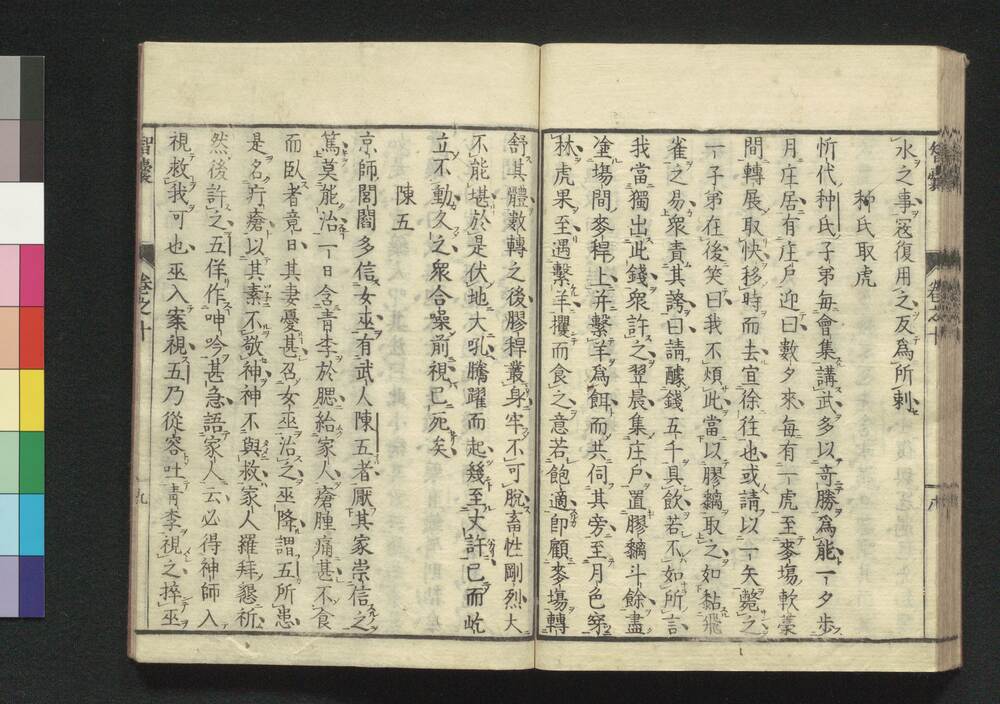 水之事寇復用之反為所剌
种氏取虎
忻代种氏子弟每會集講武多以奇勝為能一夕步
月庄居有庄戶迎曰數夕來每有一虎至麥塲軟藁
間轉展取快移時而去宜徐徃也或請以一矢斃之
一子弟在後笑曰我不煩此當以膠黐取之如黏飛
雀之易衆責其誇曰請醵錢五千具飲若不如所言
我當獨出此錢衆許之翌晨集庄戶置膠黐斗餘盡
塗塲間麥稈上并繫羊為餌而共伺其旁至月色穿
林虎果至遇繫羊攫而食之意若飽適即顧麥塲轉
舒其體數轉之後膠稈叢身牢不可脫畜性剛烈大
不能堪於是伏地大吼騰躍而起幾至丈許已而屹
立不動久之衆合噪前視已死矣
陳五
京師閭閻多信女巫有武人陳五者厭其家崇信之
篤莫能治一日含青李於腮給家人瘡腫痛甚不食
而臥者竟日其妻憂甚召女巫治之巫降謂五所患
是名疔瘡以其素不敬神神不與救家人羅拜懇祈
然後許之五佯作呻吟甚急語家人云必得神師入
視救我可也巫入案視五乃從容吐青李視之捽巫
智囊
卷之十
九